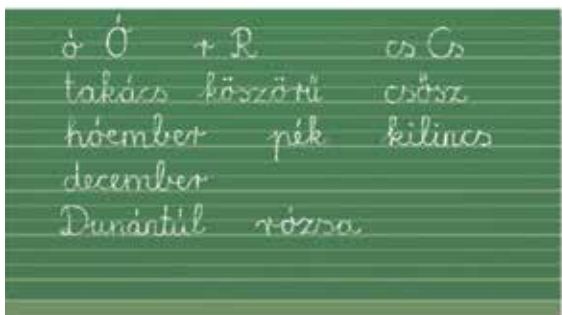 ó Ó r R cs Cs
takács köszörű csősz
hóember pék kilincs
december
Dunántúl rózsa